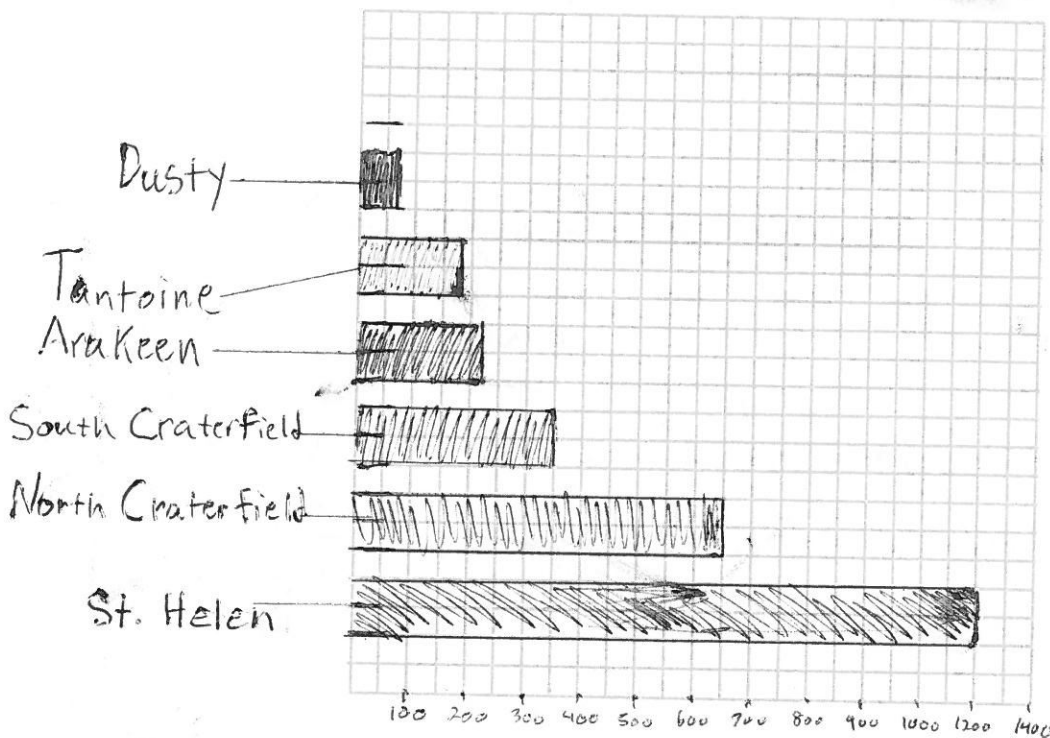 Dusty
Tantoine
Arakeen
South Craterfield
North Craterfield
St. Helen
100 200 300 400 500 600 700 800 900 1000 1200 1400